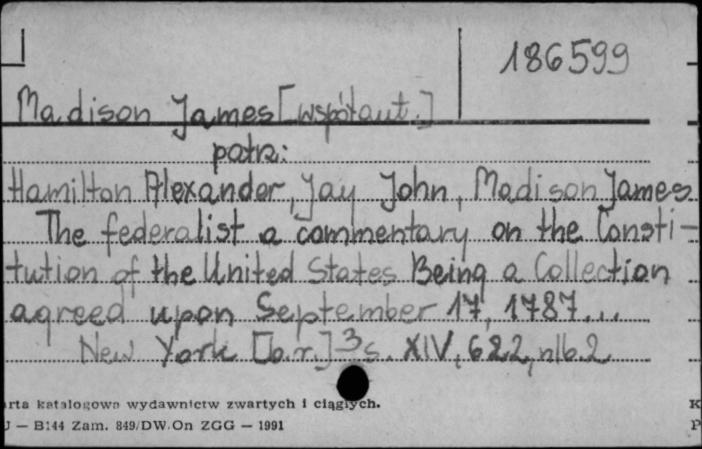 186599
Madison James [współaut.]
patrz:
Hamilton Alexander, Jay John, Madison James
The federalist a commentary on the Consti-
tution of the United States Being a Collection
agreed upon September 17, 1787...
New York [b.r.] 3 s. XIV, 622, nlb. 2
arta katalogowa wydawnictw zwartych i ciągłych.
J — B144 Zam. 849/DW.On ZGG — 1991
K
P